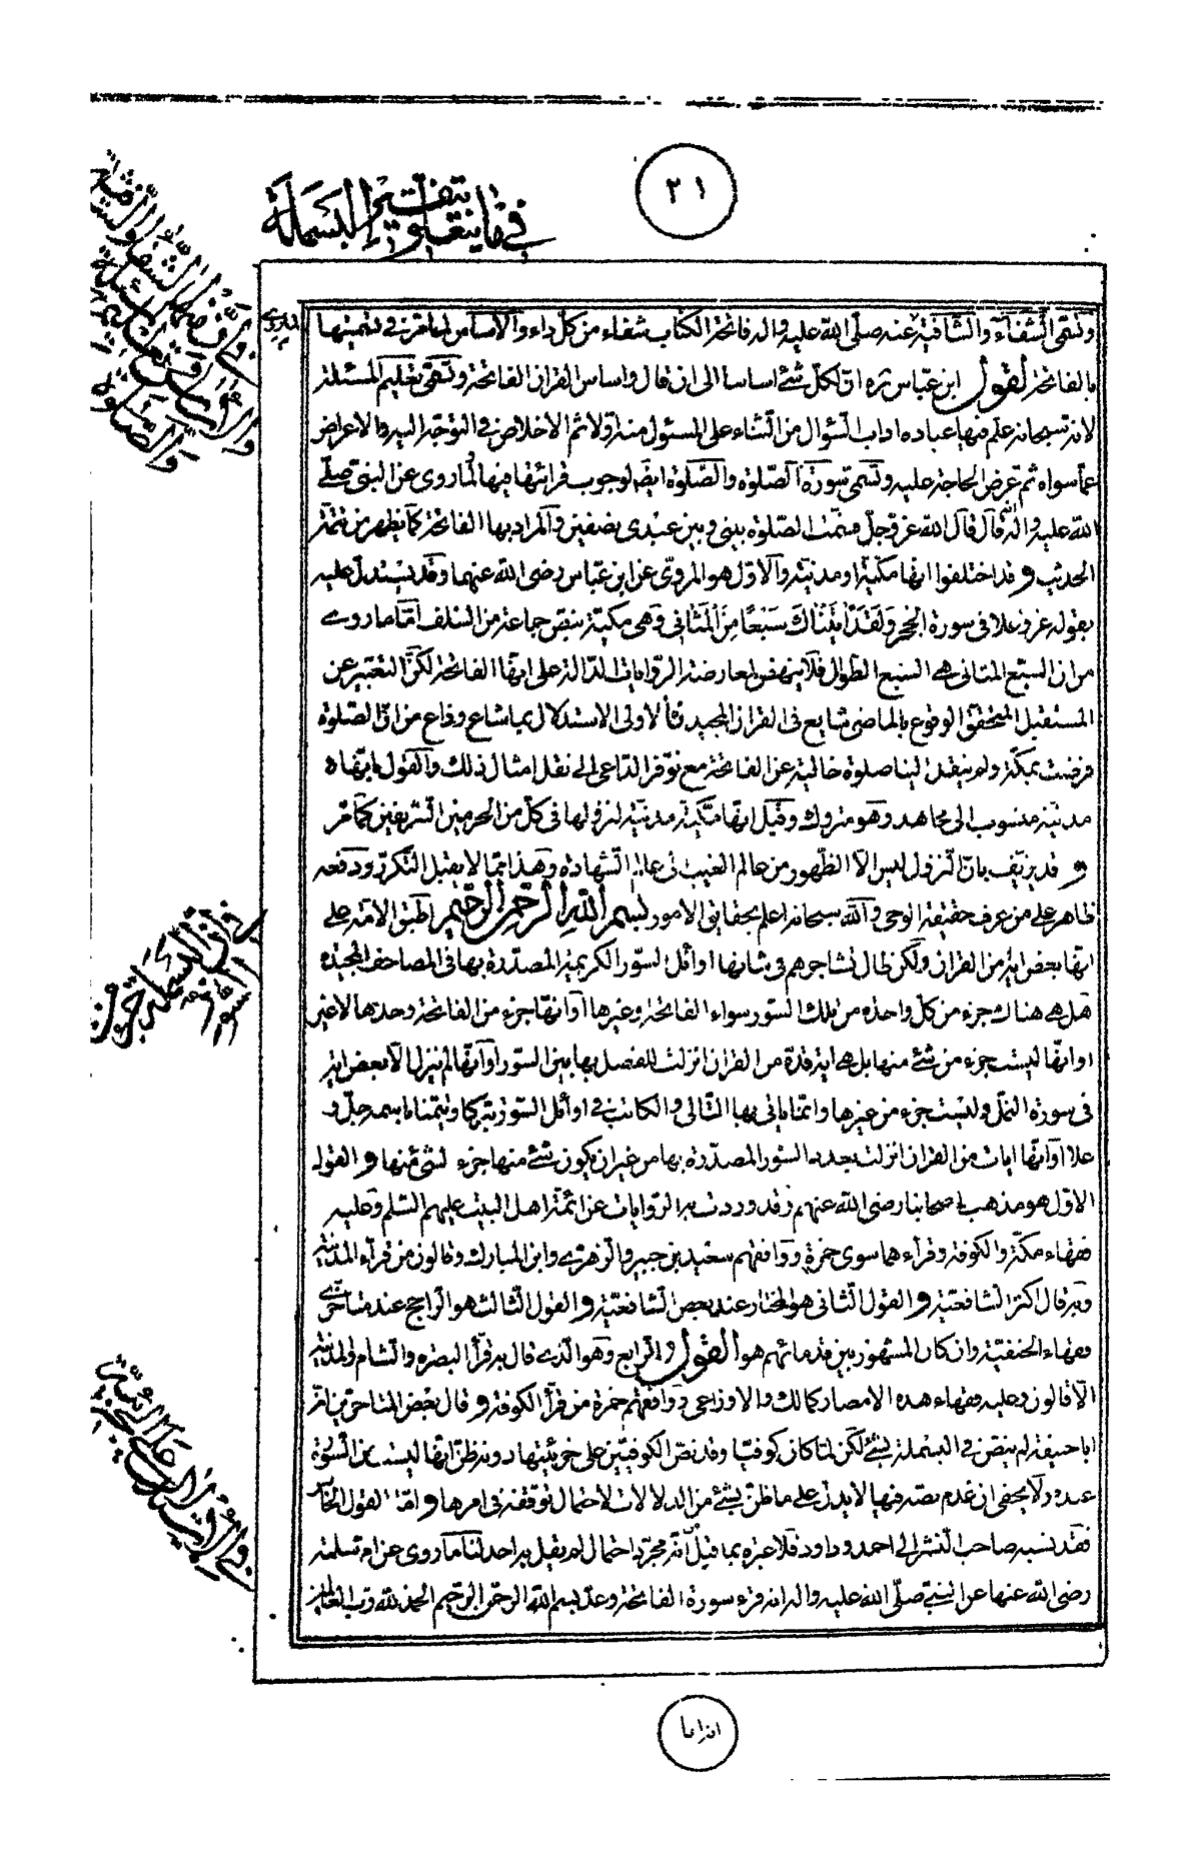 ٢١
في ما يتعلق بتفسير البسملة
وتسمى الشفاء والشافية عنه صلى الله عليه واله فاتحة الكتاب شفاء من كل داء والاساس لما مر في تسميتها
بالفاتحة لقول ابن عباس ره ان لكل شئ اساسا الى ان قال واساس القران الفاتحة وتسمى تعليم المسئلة
لانه سبحانه علم فيها عباده اداب السؤال من الثناء على المسئول منه اولا ثم الاخلاص في التوجه اليه والاعراض
عما سواه ثم عرض الحاجة عليه وتسمى سورة الصلوة والصلوة ايضا لوجوب قرائتها فيها لما روى عن النبي صلى
الله عليه واله قال قال الله عز وجل قسمت الصلوة بيني وبين عبدى نصفين والمراد بها الفاتحة كما يظهر من تتمة
الحديث وقد اختلفوا انها مكية او مدنية والاول هو المروى عن ابن عباس رضى الله عنهما وقد يستدل عليه
بقوله عز وعلا فى سورة الحجر ولقد اتيناك سبعا من المثانى وهى مكية بنص جماعة من السلف اما ما روى
من ان السبع المثانى هى السبع الطول فلا ينهض لمعارضة الروايات الدالة على انها الفاتحة لكن التعبير عن
المستقبل المتحقق الوقوع بالماضى شايع فى القران المجيد فالاولى الاستدلال بما شاع وذاع من ان الصلوة
فرضت بمكة ولم ينقل الينا صلوة خالية عن الفاتحة مع توفر الداعى الى نقل امثال ذلك والقول بانها
مدنية منسوب الى مجاهد وهو متروك وقيل انها مكية مدنية لنزولها فى كل من الحرمين الشريفين كما مر
وقد يزيف بان النزول ليس الا الظهور من عالم الغيب فى عالم الشهادة وهذا مما لا يقبل التكرر ودفعه
ظاهر على من عرف حقيقة الوحى والله سبحانه اعلم بحقايق الامور بسم الله الرحمن الرحيم اطبق الامة على
انها بعض اية من القران ولكن طال تشاجرهم فى شانها اوائل السور الكريمة المصدرة بها فى المصاحف المجيدة
هل هى هناك جزء من كل واحدة من تلك السور سواء الفاتحة وغيرها او انها جزء من الفاتحة وحدها لا غير
او انها ليست جزء من شئ منها بل هى اية فذة من القران انزلت للفصل بها بين السور او انها لم ينزل الا بعض اية
فى سورة النمل وليست جزء من غيرها وانما ياتى بها التالى والكاتب فى اوائل السور تبركا وتيمنا باسمه جل و
علا او انها ايات من القران انزلت بعدد السور المصدرة بها من غير ان يكون شئ منها جزء لشئ منها والقول
الاول هو مذهب اصحابنا رضى الله عنهم وقد وردت به الروايات عن ائمة اهل البيت عليهم السلم وعليه
فقهاء مكة والكوفة وقراءهما سوى حمزة ووافقهم سعيد بن جبير والزهرى وابن المبارك وقالون من قراء المدينة
وبه قال اكثر الشافعية والقول الثانى هو المختار عند بعض الشافعية والقول الثالث هو الراجح عند متاخرى
فقهاء الحنفية وان كان المشهور بين قدمائهم هو القول الرابع وهو الذى قال به قراء البصرة والشام والمدينة
الا قالون وعليه فقهاء هذه الامصار كمالك والاوزاعى ووافقهم حمزة من قراء الكوفة وقال بعض المتاخرين ان
ابا حنيفة لم ينص فى البسملة بشئ لكن لما كان كوفيا وقد نص الكوفيين على جزئيتها دونه ظن انها ليست من السورة
عنده ولا يخفى ان عدم نصه فيها لا يدل على ما ظن بشئ من الدلالات لاحتمال توقفه فى امرها واما القول الخامس
فقد نسبه صاحب النشر الى احمد وداود فلا عبرة بما قيل انه مجرد احتمال لم يقل به احد لنا ما روى عن ام سلمة
رضى الله عنها عن النبى صلى الله عليه واله انه قرء سورة الفاتحة وعد بسم الله الرحمن الرحيم الحمد لله رب العالمين
في ان البسملة جزء من